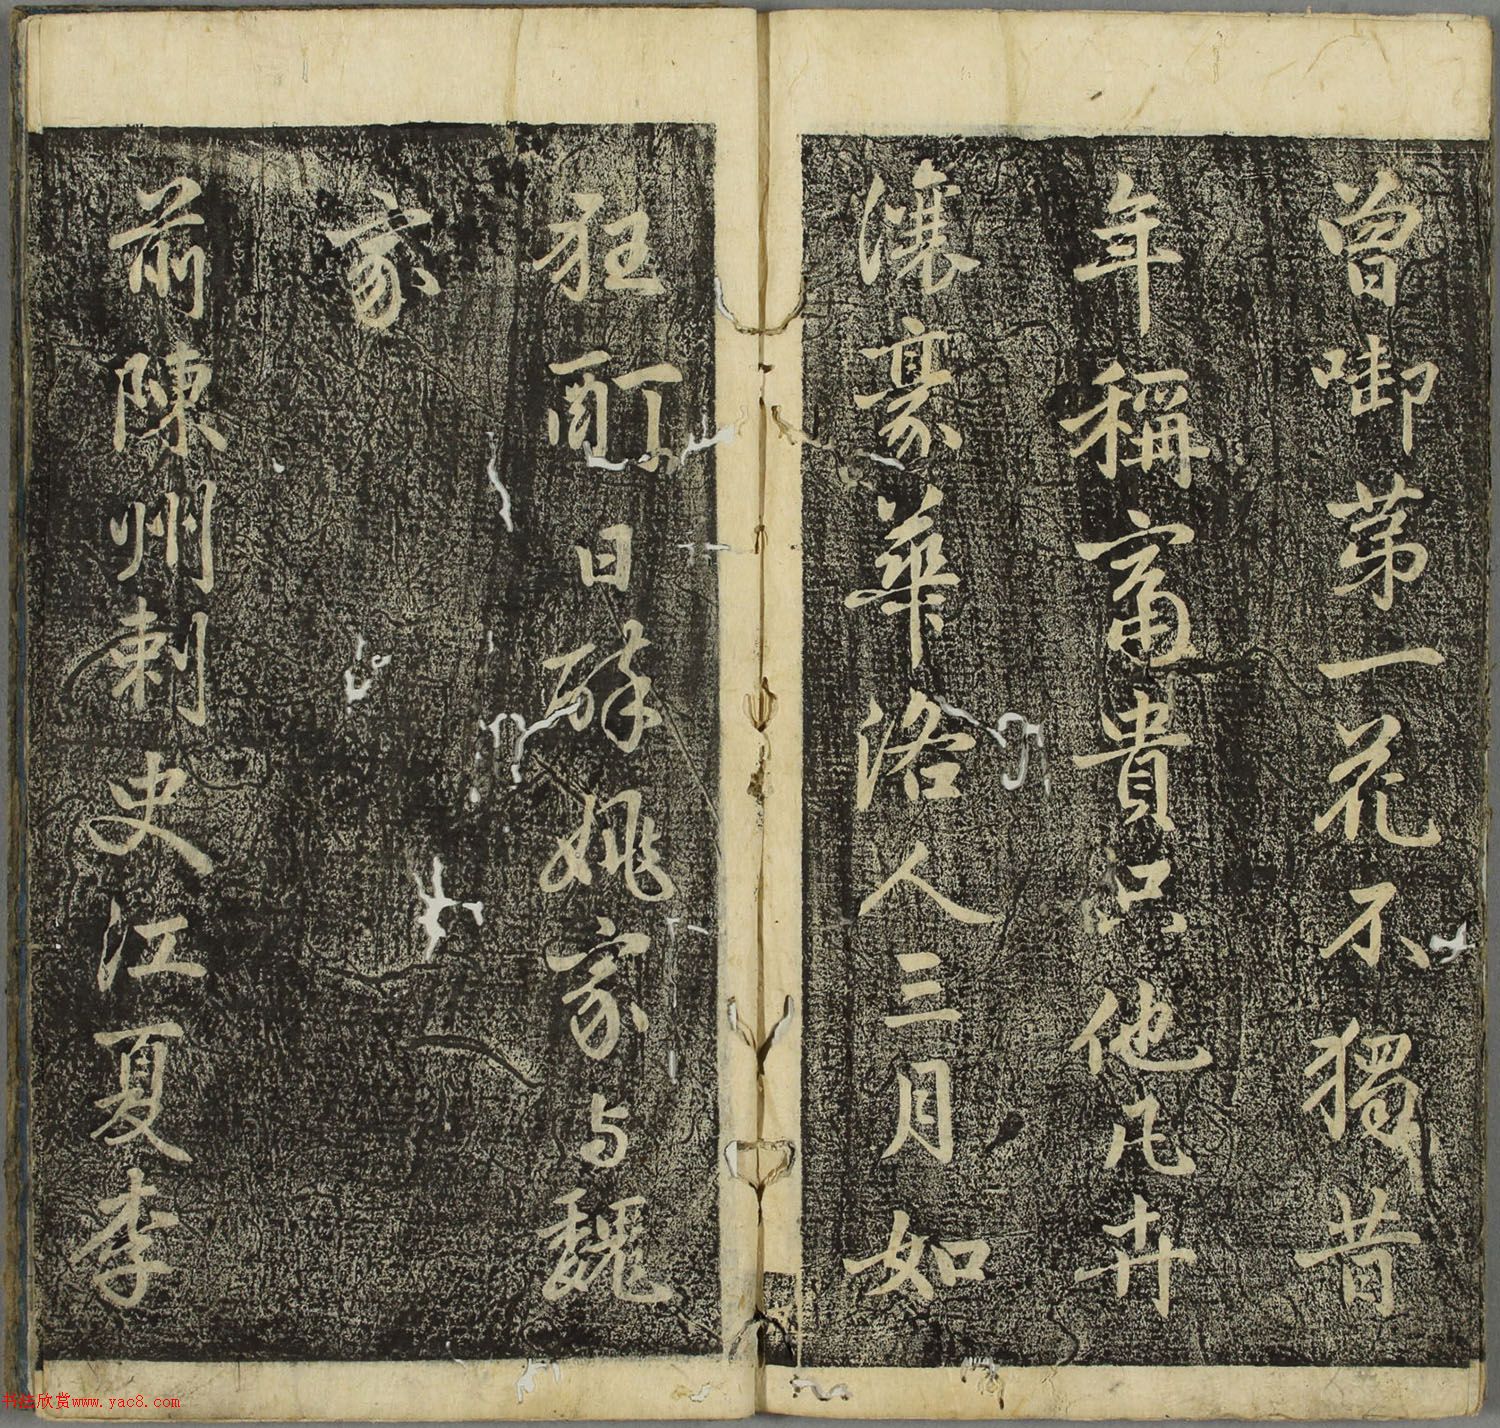 曾啣苐一花不獨昔
年稱富貴只他凡卉
讓豪華洛人三月如
狂酊日醉姚家与魏
家
前陳州刺史江夏李
书法欣赏www.yac8.com